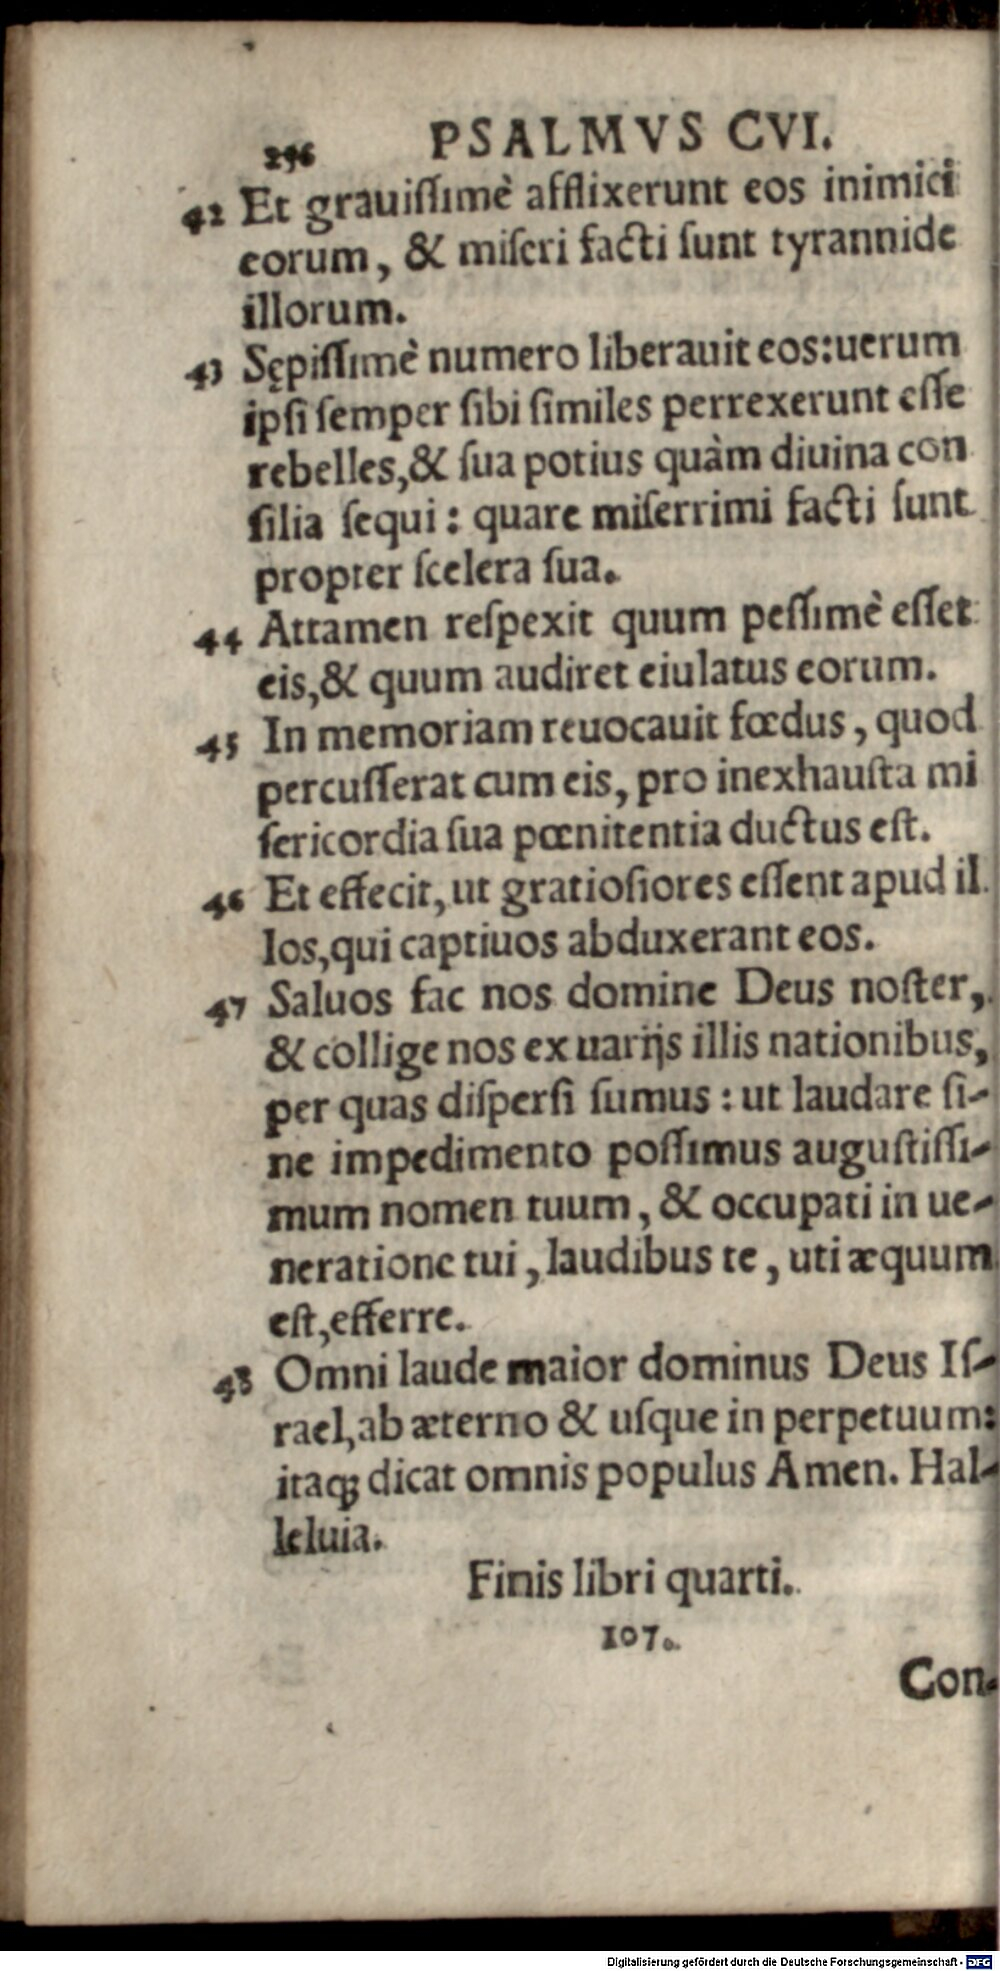 296 PSALMVS CVI.
42 Et grauiſſimè afflixerunt eos inimici
eorum, & miſeri facti ſunt tyrannide
illorum.
43 Sępiſſimè numero liberauit eos: uerum
ipſi ſemper ſibi ſimiles perrexerunt eſſe
rebelles, & ſua potius quàm diuina con
ſilia ſequi: quare miſerrimi facti ſunt
propter ſcelera ſua.
44 Attamen reſpexit quum peſſimè eſſet
eis, & quum audiret eiulatus eorum.
45 In memoriam reuocauit fœdus, quod
percuſſerat cum eis, pro inexhauſta mi
ſericordia ſua pœnitentia ductus eſt.
46 Et effecit, ut gratioſiores eſſent apud il
los, qui captiuos abduxerant eos.
47 Saluos fac nos domine Deus noſter,
& collige nos ex uarijs illis nationibus,
per quas diſperſi ſumus: ut laudare ſi-
ne impedimento poſſimus auguſtiſſi-
mum nomen tuum, & occupati in ue-
neratione tui, laudibus te, uti æquum
eſt, efferre.
48 Omni laude maior dominus Deus Iſ-
rael, ab æterno & uſque in perpetuum:
itaq; dicat omnis populus Amen. Hal-
leluia.
Finis libri quarti.
107.
Con-
Digitalisierung gefördert durch die Deutsche Forschungsgemeinschaft - DFG